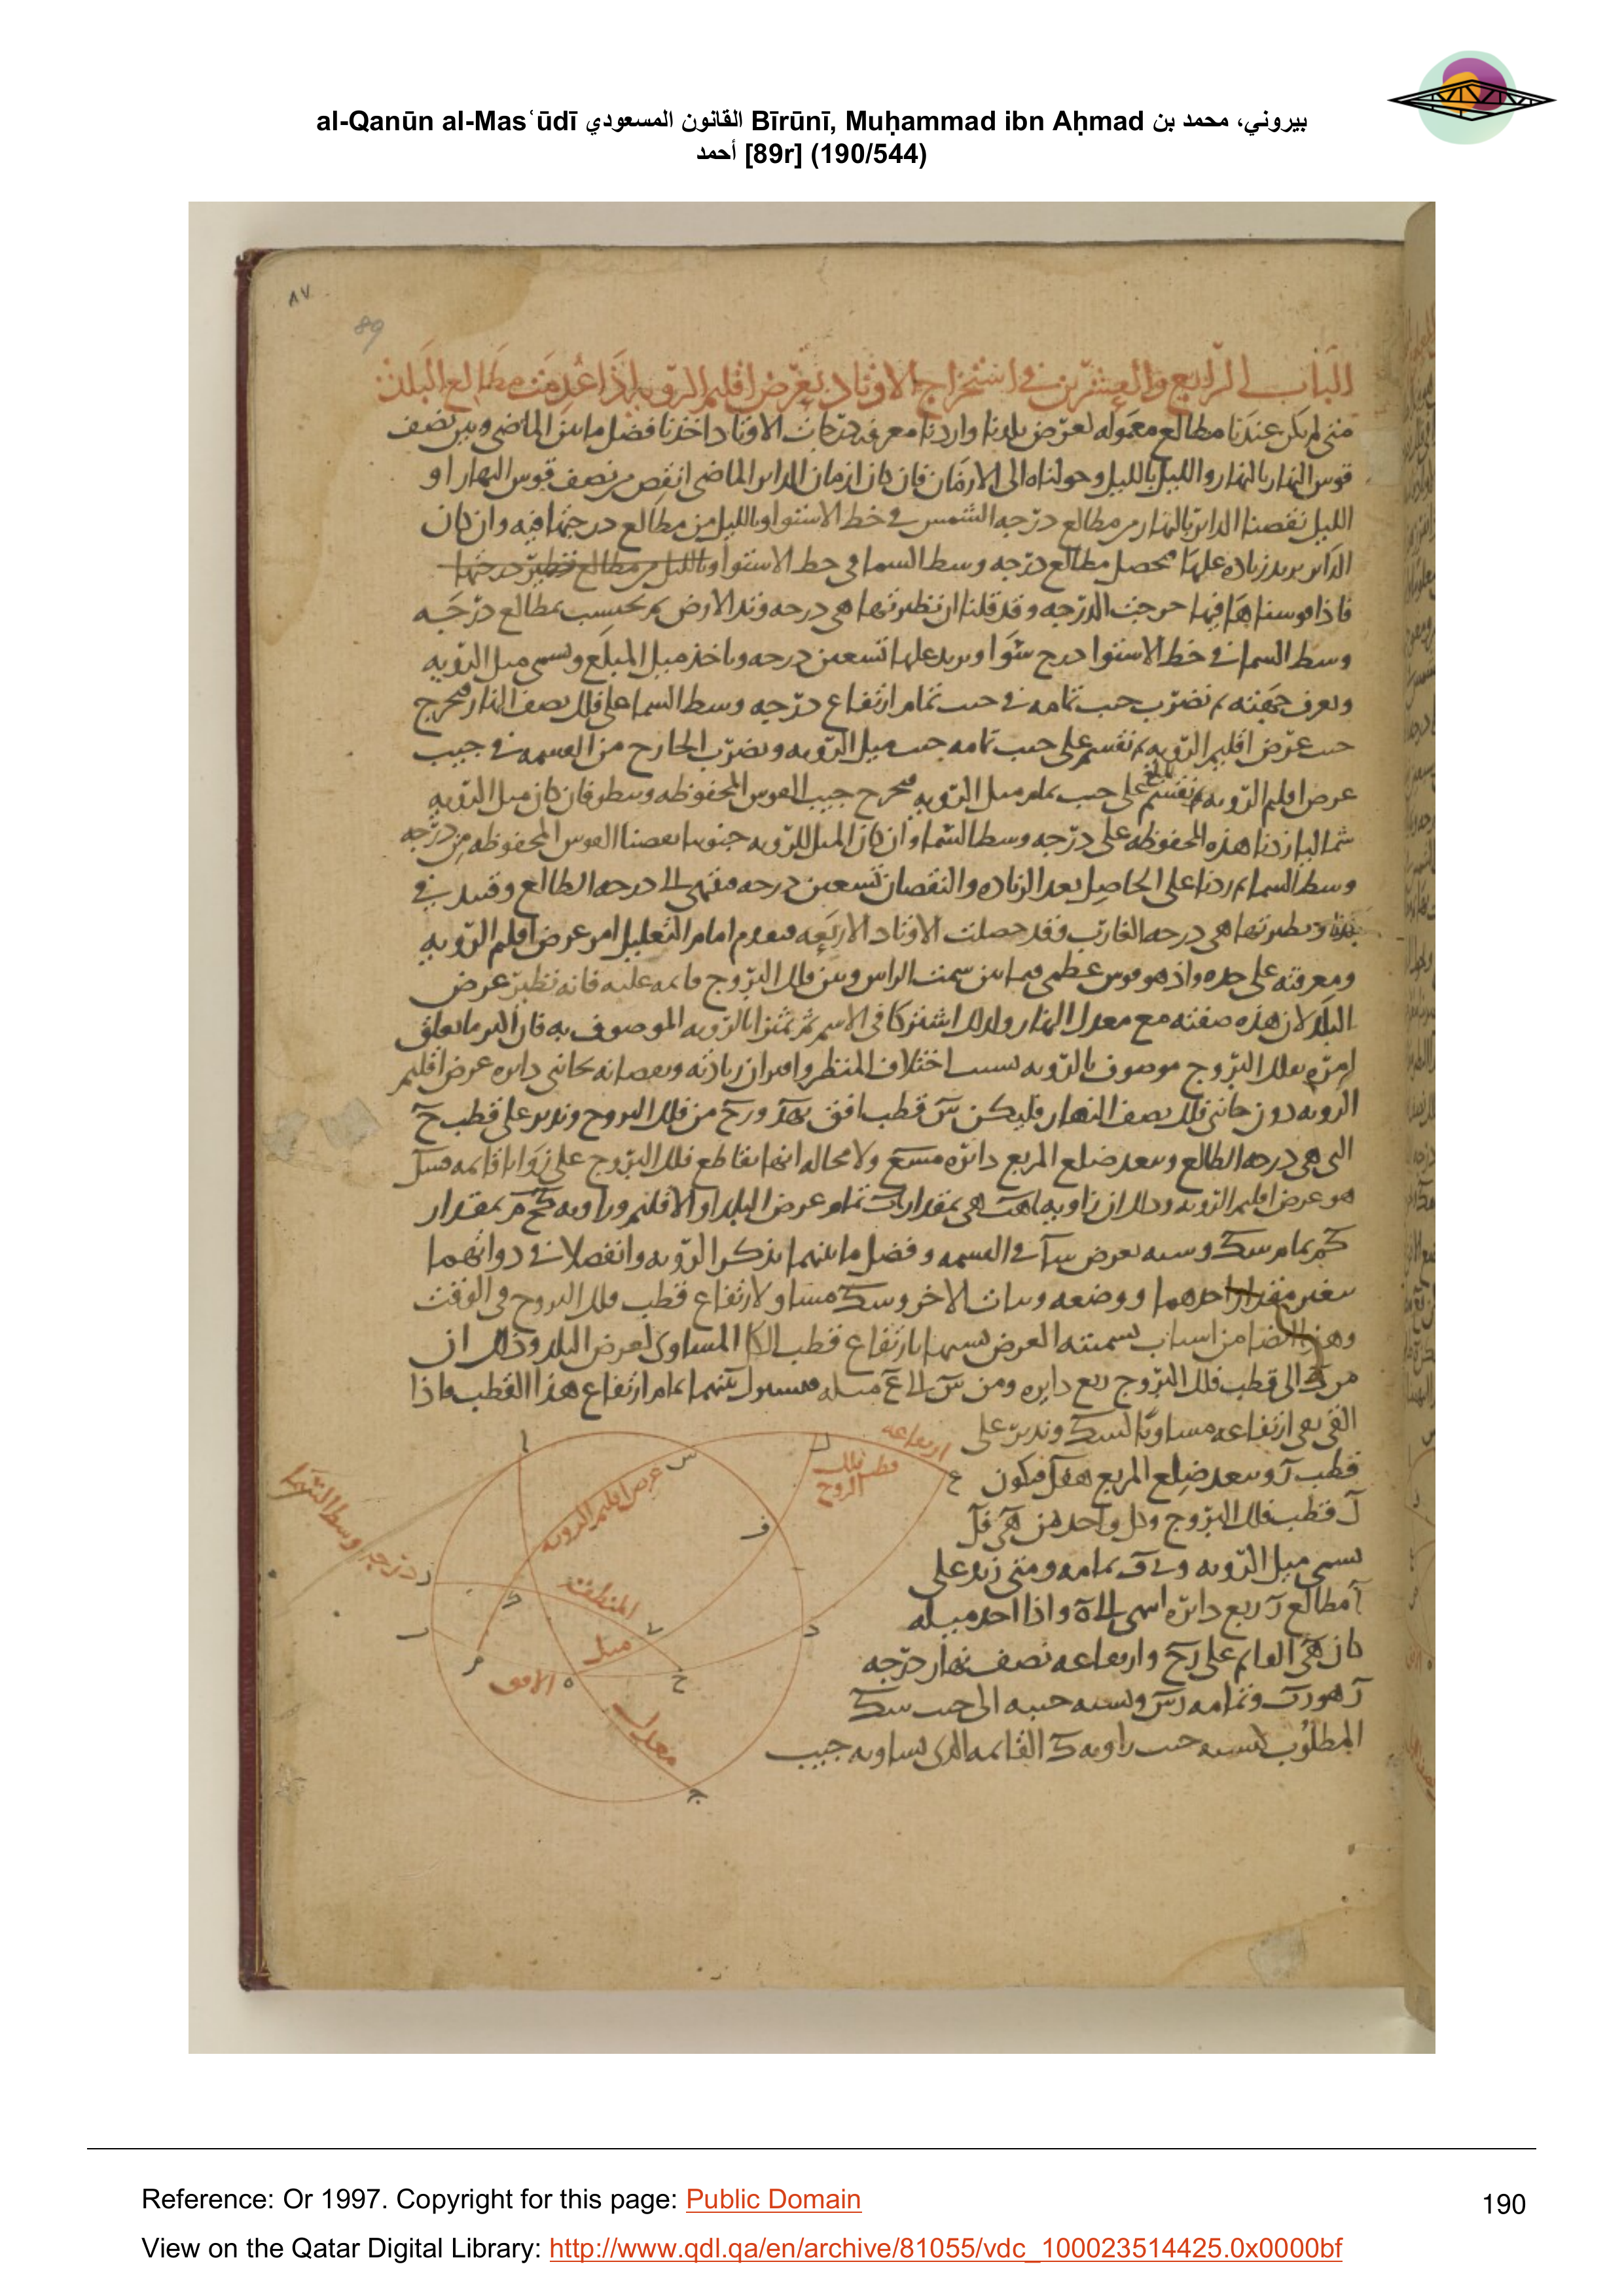 al-Qanūn al-Masʿūdī القانون المسعودي Bīrūnī, Muḥammad ibn Aḥmad بيروني، محمد بن
أحمد [89r] (190/544)
٨٧
89
الباب الرابع والعشرين في استخراج الاوتاد بعرض اقليم الروية اذا عدمت مطالع البلد
متى لم يكن عندنا مطالع معموله لعرض بلدنا واردنا معرفه درجات الاوتاد اخذنا فضل ما بين الماضي وبين نصف
قوس النهار بالنهار والليل بالليل وحولناه الى الازمان فان كان ازمان الداير الماضي انقص من نصف قوس النهار او
الليل نقصنا الداير بالنهار من مطالع درجه الشمس في خط الاستوا وبالليل من مطالع درجتها فيه وان كان
الداير يزيد زياده عليها محصل مطالع درجه وسط السما في خط الاستوا وبالليل من مطالع نظير درجتها
فاذا قوسناها فيها خرجت الدرجه وقد قلنا ان نظيرتها هي درجه وتد الارض ثم نحسب بمطالع درجه
وسط السما في خط الاستوا درج سوا ونزيد عليها تسعين درجه وناخذ ميل المبلغ ويسمى ميل الرويه
ونعرف جهته ثم نضرب جيب تمامه في جيب تمام ارتفاع درجه وسط السما على فلك نصف النهار فيخرج
جيب عرض اقليم الرويه ثم نقسم على جيب تمامه جيب ميل الرويه ونضرب الخارج من القسمه في جيب
عرض اقليم الرويه ثم نقسم المبلغ على جيب تمام ميل الرويه فيخرج جيب القوس المحفوظه وننظر فان كان ميل الرويه
شماليا زدنا هذه المحفوظه على درجه وسط السما وان كان الميل للرويه جنوبيا نقصنا القوس المحفوظه من درجه
وسط السما ثم زدنا على الحاصل بعد الزياده والنقصان تسعين درجه فننتهى الى درجه الطالع وقيد في
ونظيرتها هي درجه الغارب فقد حصلت الاوتاد الاربعه فنقدم امام التعليل امر عرض اقليم الرويه
ومعرفته على حده واذ هو قوس عظمى فيما بين سمت الراس وبين فلك البروج قايمه عليه فانه نظير عرض
البلد لان هذه صفته مع معدل النهار ولذلك اشتركا في الاسم ثم تميزا بالرويه الموصوف به فان اكثر ما يعلق
بفلك البروج موصوف بالرويه بسبب اختلاف المنظر واقتران زيادته ونقصانه بجانبي دايره عرض اقليم
الرويه دون جانبي فلك نصف النهار فليكن س قطب افق ب ه د و ر ح من فلك البروج وندير على قطب ح
التي هي درجه الطالع وببعد ضلع المربع دائره م س ع ولا محاله انها تقاطع فلك البروج على زوايا قايمه فس ك
هو عرض اقليم الرويه وذلك ان زاويه ا ه ب هي بمقدار ا ب تمام عرض البلد او الاقليم وزاويه ك ح م بمقدار
ك م تمام س ك وسبه بعرض س ا في التسمه وفضل ما بينهما بذكر الرويه وانفصلا في ذواتهما
بتغير مقدار احدهما ووضعه وثبات الاخر وس ك مساو لارتفاع قطب فلك البروج في الوقت
وهذا ايضا من اسباب تسميته العرض تشبيها بارتفاع قطب الكل المساوي لعرض البلد وذلك ان
من ك الى قطب فلك البروج ربع دايره ومن س الى ع مثله فيشترك بينهما تمام ارتفاع هذا القطب فاذا
القي بقي ارتفاعه مساويا لس ك وندير على
قطب ر وببعد ضلع المربع ه ف ل فيكون
ل قطب فلك البروج وكل واحد من ه ي ف ل
يسمى ميل الرويه و ي ف تمامه ومتى زيد على
ا مطالع ر ربع دائره انتهى الى ه واذا اخذ ميله
كان ه ي القايم على ر ح وارتفاعه نصف نهار درجه
ر هو ر ب وتمامه ر س ونسبه جيبه الى جيب س ك
المطلوب كنسبه جيب زاويه ك القايمه الذي يساويه جيب
ارتفاعه
قطب فلك البروج
عرض اقليم الرويه
درجه وسط السما
المنطقه
ميل
الافق
معدل
Reference: Or 1997. Copyright for this page: Public Domain
190
View on the Qatar Digital Library: http://www.qdl.qa/en/archive/81055/vdc_100023514425.0x0000bf